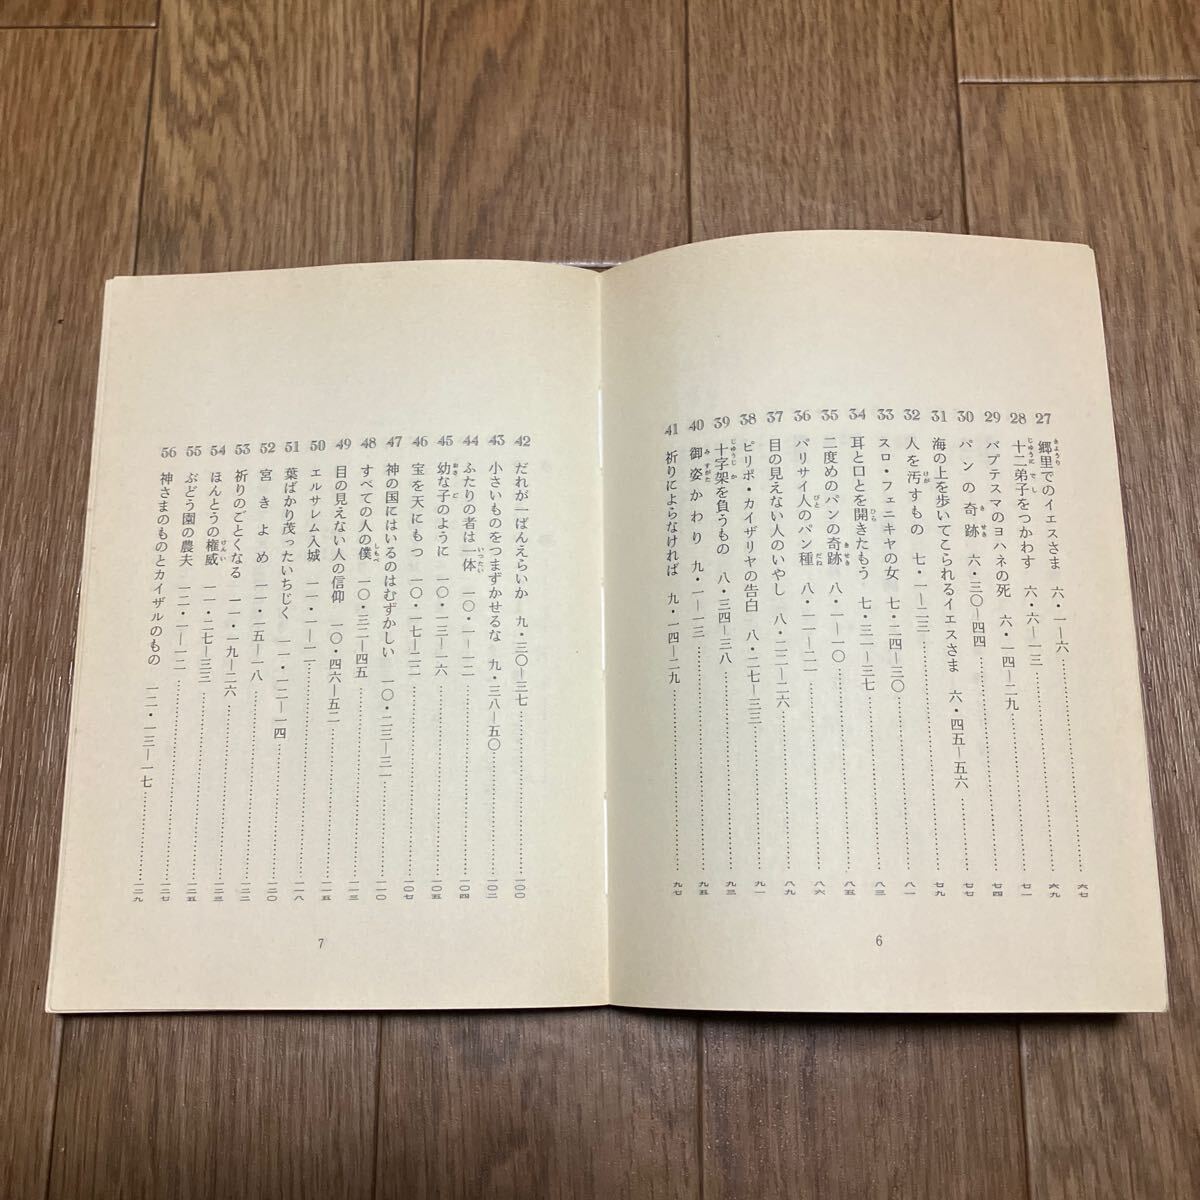 27 郷里でのイエスさま 六・一―六 六七
28 十二弟子をつかわす 六・六―一三 六九
29 バプテスマのヨハネの死 六・一四―二九 七一
30 パンの奇跡 六・三〇―四四 七四
31 海の上を歩いてこられるイエスさま 六・四五―五六 七七
32 人を汚すもの 七・一―二三 七九
33 スロ・フェニキヤの女 七・二四―三〇 八一
34 耳と口とを開きたもう 七・三一―三七 八三
35 二度めのパンの奇跡 八・一―一〇 八五
36 パリサイ人のパン種 八・一一―二一 八六
37 目の見えない人のいやし 八・二二―二六 八九
38 ピリポ・カイザリヤの告白 八・二七―三三 九一
39 十字架を負うもの 八・三四―三八 九三
40 御姿かわり 九・一―一三 九五
41 祈りによらなければ 九・一四―二九 九七
6
42 だれが一ばんえらいか 九・三〇―三七 一〇〇
43 小さいものをつまずかせるな 九・三八―五〇 一〇二
44 ふたりの者は一体 一〇・一―一二 一〇四
45 幼な子のように 一〇・一三―一六 一〇五
46 宝を天にもつ 一〇・一七―二二 一〇七
47 神の国にはいるのはむずかしい 一〇・二三―三一 一一〇
48 すべての人の僕 一〇・三二―四五 一一三
49 目の見えない人の信仰 一〇・四六―五二 一一五
50 エルサレム入城 一一・一―一一 一一八
51 葉ばかり茂ったいちじく 一一・一二―一四 一二〇
52 宮きよめ 一一・一五―一八 一二二
53 祈りのごとくなる 一一・一九―二六 一二三
54 ほんとうの権威 一一・二七―三三 一二五
55 ぶどう園の農夫 一二・一―一二 一二七
56 神さまのものとカイザルのもの 一二・一三―一七 一二九
7